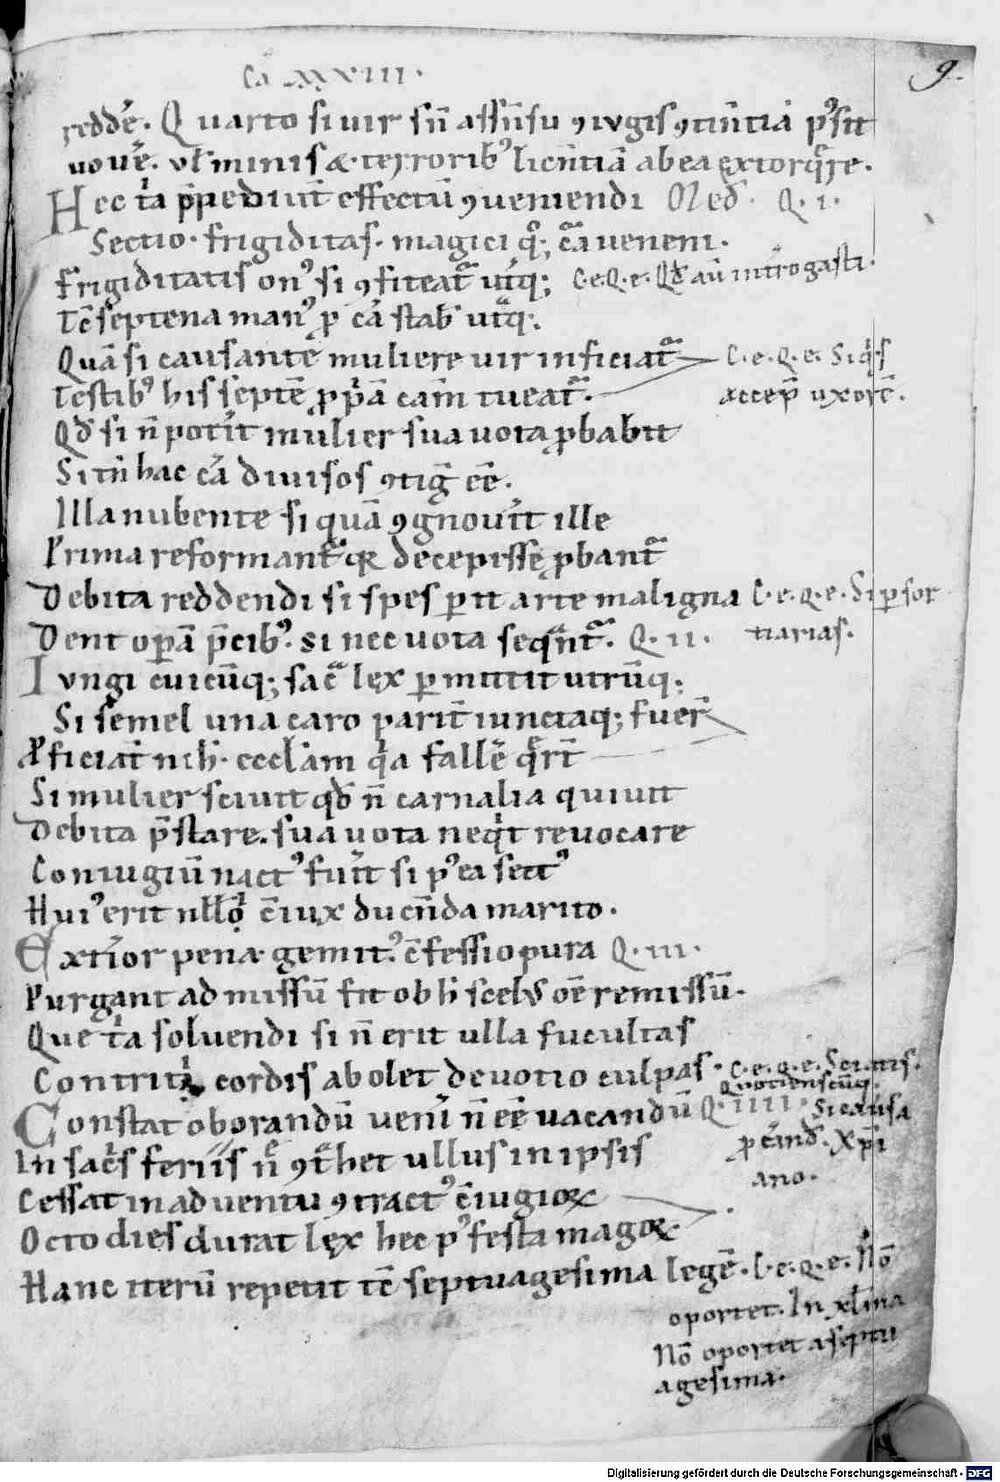 Ca xxxiii.
9.
reddē. Quarto si uir sn̄ assn̄su ꝯiugis ꝯtin̄tiā p̄sit
uouē. ul̄ minis & terroribꝰ licn̄tiā ab ea extorq̄re.
Hec t̄a p̄pediūt effectū ꝯueniendi Q. i.
Sectio. frigiditas. magici qꝫ cā ueneni.
Frigiditatis onꝰ si ꝯfiteat̄ ut̄qꝫ C. e. Q. e. Qd̄ aū int̄rogasti.
Tc̄ septena manꝰ ꝓ cā stab̄ ut̄qꝫ.
Quā si causante muliere uir inficiat̄ C. e. q. e. Si qis
Testibꝰ his septē ꝓpā cām tueat̄. accep̄ uxorē.
Qd̄ si n̄ pot̄it mulier sua uota ꝓbabit
Si tn̄ hac cā diuisos ꝯtiḡ ēē.
Illa nubente si quā ꝯgnoūit ille
Prima reformant̄ qꝫ decepisse ꝓbant̄
Debita reddendi si spes ꝑit arte maligna C. e. q. e. Si ꝑ sor
Dent oꝑā p̄cibꝰ. si nec uota seqn̄t̄. Q. ii. tiarias.
Iungi cuicūqꝫ sac̄ lex ꝑmittit utrūqꝫ
Si semel una caro parit̄ iunctaqꝫ fuer̄
Aꝑficiat̄ nich̄. eccl̄am qa fallē qr̄t
Si mulier sciuit qd̄ n̄ carnalia quiuit
Debita p̄stare. sua uota neqt reuocare
Coniugiū nactꝰ fuīt si pꝰ ea sectꝰ
Huiꝰ erit nll̄o c̄iux ducn̄da marito.
Extīor pena. gemitꝰ. c̄fessio pura Q. iii.
Purgant admissū fit ob h̄ scelꝰ oē remissū.
Que t̄a soluendi si n̄ erit ulla facultas
Contriti cordis abolet deuotio culpas. C. e. q. e. Sciatis.
Quotienscūqꝫ.
Constat oborandū uen̄i n̄ ēē uacandū Q. iiii. Si causa
In sac̄s feriis n̄ ꝯt̄het ullus in ipsis ꝓ t̄and. Xp̄i
ano.
Cessat in aduentu ꝯtractꝰ c̄iugioꝝ
Octo dies durat lex hec pꝰ festa magoꝝ.
Hanc iterū repetit tc̄ septuagesima legē. C. e. q. e. Nō
oportet. In xl̄ma
Nō oportet a septu
agesima.
Digitalisierung gefördert durch die Deutsche Forschungsgemeinschaft - DFG